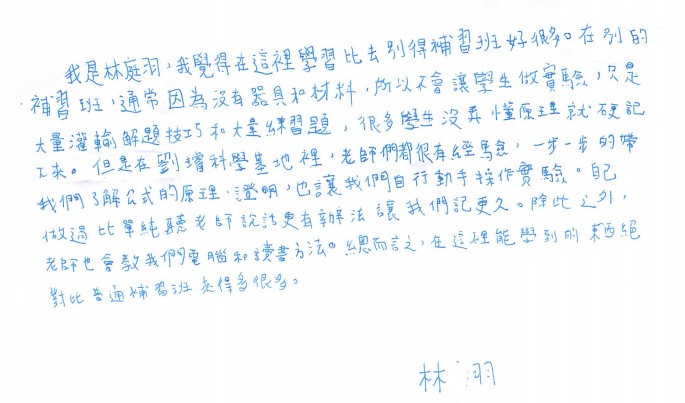 我是林庭羽,我覺得在這裡學習比去別得補習班好很多。在別的
補習班,通常因為沒有器具和材料,所以不會讓學生做實驗,只是
大量灌輸解題技巧和大量練習題,很多學生沒弄懂原理就硬記
下來。但是在劉璿科學基地裡,老師們都很有經驗,一步一步的帶
我們了解公式的原理、證明,也讓我們自行動手操作實驗。自己
做過比單純聽老師說話更有辦法讓我們記更久。除此之外,
老師也會教我們電腦和讀書方法。總而言之,在這裡能學到的東西絕
對比普通補習班來得多很多。
林 羽